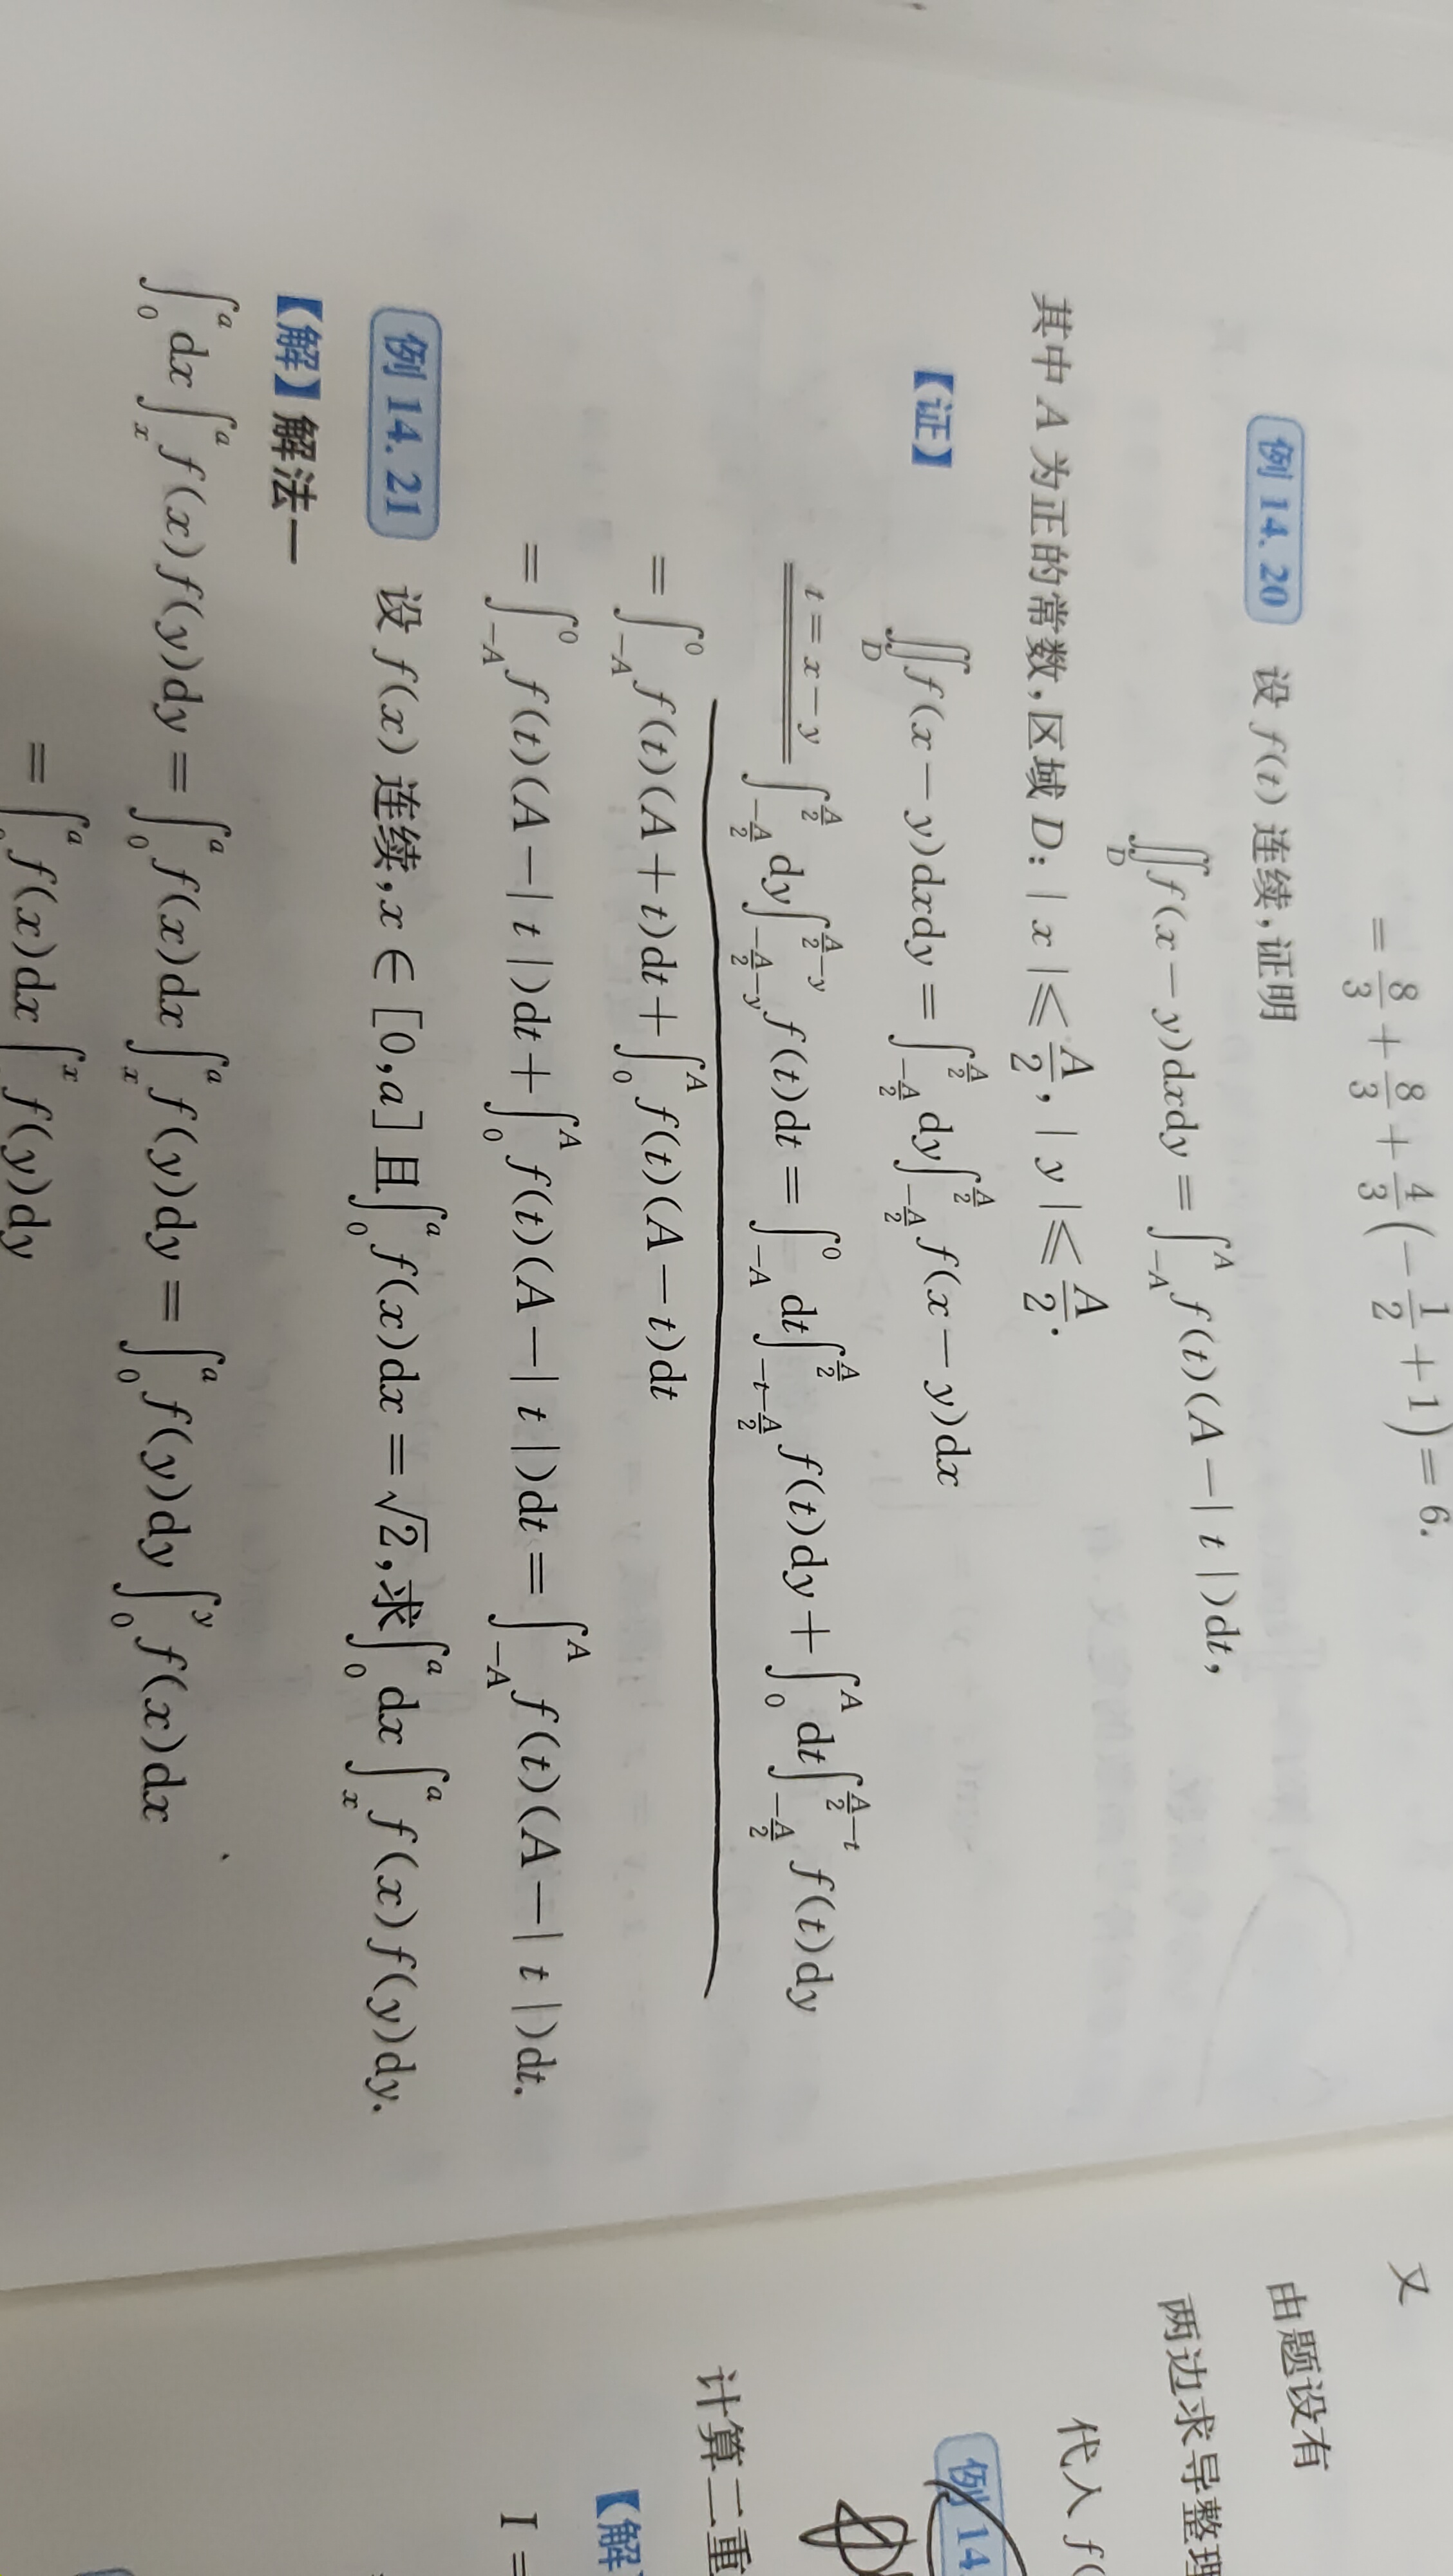 = 8/3 + 8/3 + 4/3(-1/2 + 1) = 6.
例 14.20 设 f(t) 连续,证明
∬_D f(x-y)dxdy = ∫_{-A}^{A} f(t)(A-|t|)dt,
其中 A 为正的常数,区域 D: |x| ≤ A/2, |y| ≤ A/2.
【证】 ∬_D f(x-y)dxdy = ∫_{-A/2}^{A/2} dy ∫_{-A/2}^{A/2} f(x-y)dx
t=x-y ═══ ∫_{-A/2}^{A/2} dy ∫_{-A/2-y}^{A/2-y} f(t)dt = ∫_{-A}^{0} dt ∫_{-t-A/2}^{A/2} f(t)dy + ∫_{0}^{A} dt ∫_{-A/2}^{A/2-t} f(t)dy
= ∫_{-A}^{0} f(t)(A+t)dt + ∫_{0}^{A} f(t)(A-t)dt
= ∫_{-A}^{0} f(t)(A-|t|)dt + ∫_{0}^{A} f(t)(A-|t|)dt = ∫_{-A}^{A} f(t)(A-|t|)dt.
例 14.21 设 f(x) 连续,x∈[0,a] 且 ∫_{0}^{a} f(x)dx = √2,求 ∫_{0}^{a} dx ∫_{x}^{a} f(x)f(y)dy.
【解】解法一
∫_{0}^{a} dx ∫_{x}^{a} f(x)f(y)dy = ∫_{0}^{a} f(x)dx ∫_{x}^{a} f(y)dy = ∫_{0}^{a} f(y)dy ∫_{0}^{y} f(x)dx
= ∫_{0}^{a} f(x)dx ∫^{x} f(y)dy
又
由题设有
两边求导整理
代入 f(
例 14.
计算二重
【解】
I =